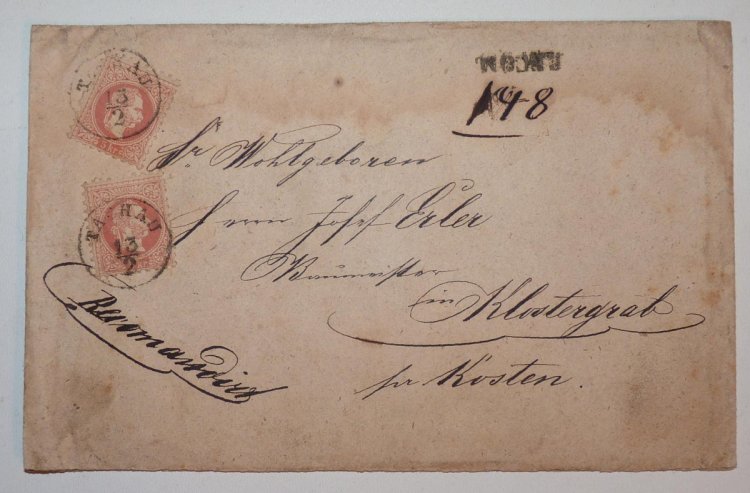 148
Sr Wohlgeboren
Herrn Josef Erler
Baumeister
in Klostergrab
pr Kosten.
Recommandirt
13/2